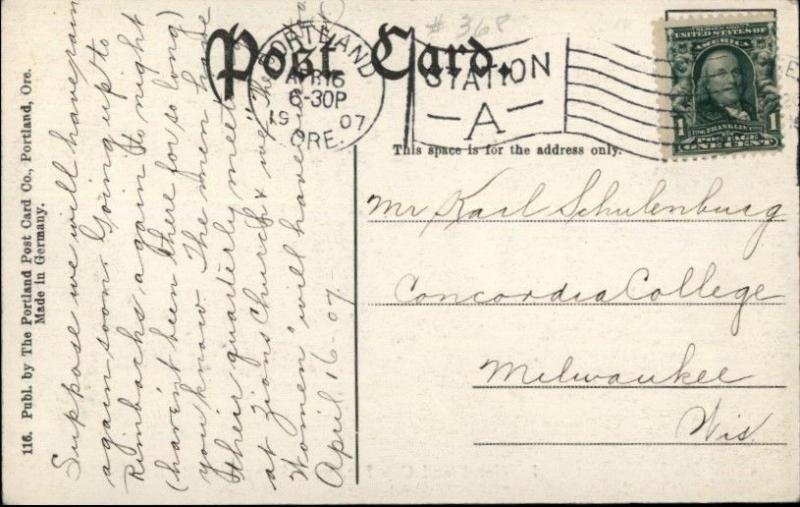 # 368
Post Card.
PORTLAND
APR 16
6-30P
19 07
ORE.
STATION
A
UNITED STATES OF
AMERICA
1
FRANKLIN
ONE CENT
This space is for the address only.
Mr Karl Schulenburg
Concordia College
Milwaukee
Wis
116. Publ. by The Portland Post Card Co., Portland, Ore.
Made in Germany.
Suppose we will have rain
again soon. Going up to
Rimbachs again to night
(havin't been there for so long)
you know. The men have
their quarterly meet
at Zions Church & we "The
Women" will have
April 16-07.